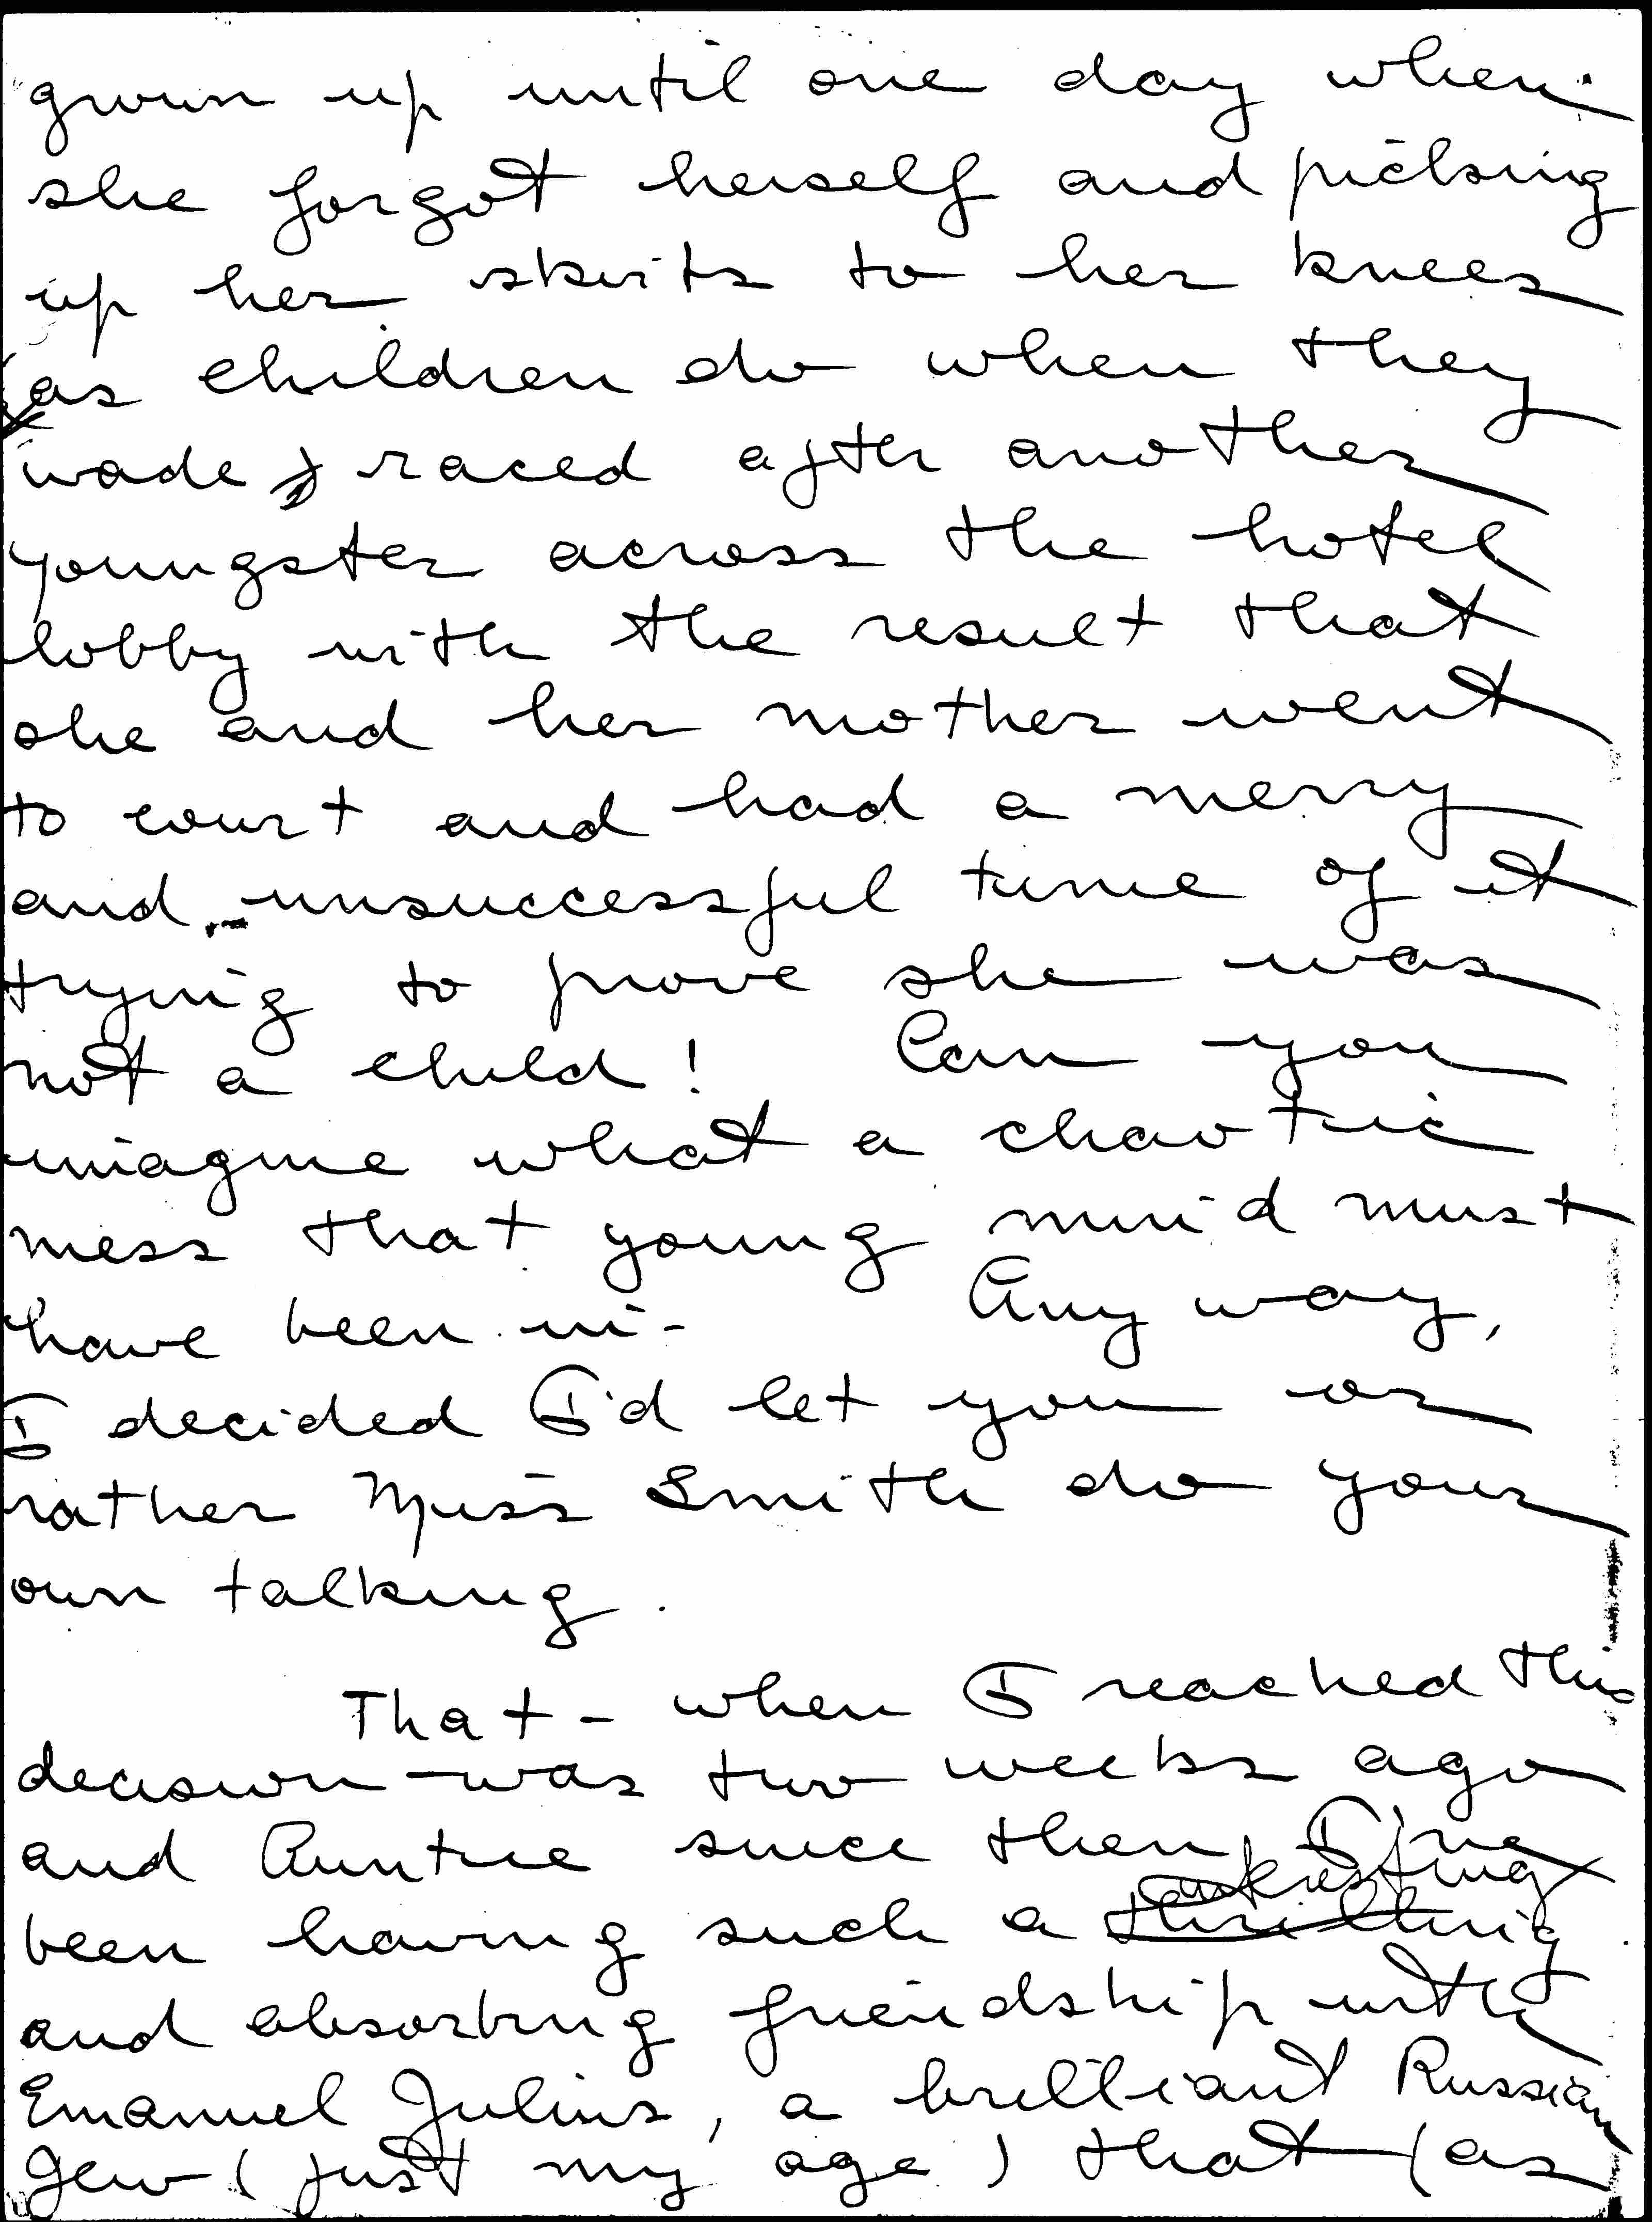 grown up until one day when
she forgot herself and picking
up her skirts to her knees
as children do when they
wade, raced after another
youngster across the hotel
lobby with the result that
she and her mother went
to court and had a merry
and unsuccessful time of it
trying to prove she was
not a child! Can you
imagine what a chaotic
mess that young mind must
have been in- Any way,
I decided I'd let you or
rather Miss Smith do your
own talking.
That - when I reached this
decision - was two weeks ago
and Auntie since then I've
interesting
been having such a thrilling
and absorbing friendship with
Emanuel Julius, a brilliant Russian
Jew (just my age) that (as